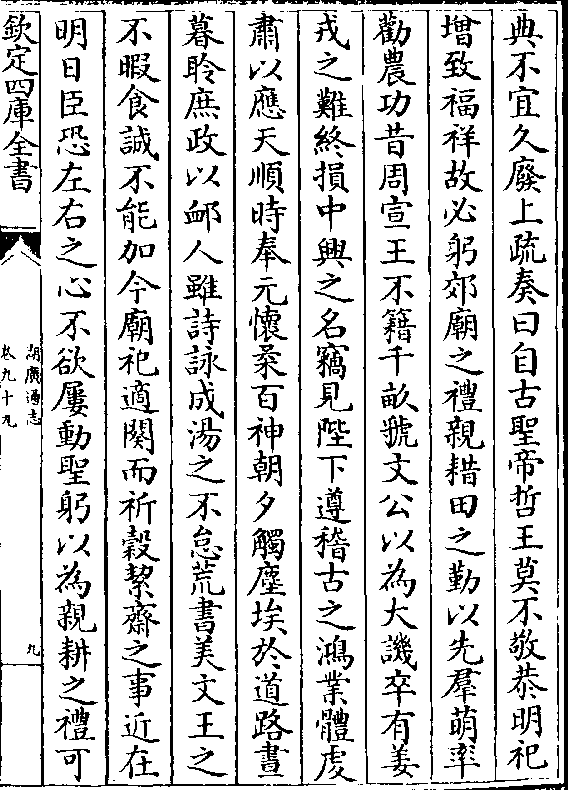 典不宜久廢上疏奏曰自古聖帝哲王莫不敬恭明祀
增致福祥故必躬郊廟之禮親耤田之勤以先羣萌率
勸農功昔周宣王不籍千畝虢文公以為大譏卒有姜
戎之難終損中興之名竊見陛下遵稽古之鴻業體虔
肅以應天順時奉元懷柔百神朝夕觸塵埃於道路晝
暮聆庶政以䘏人雖詩詠成湯之不怠荒書美文王之
不暇食誠不能加今廟祀適闋而祈穀絜齋之事近在
明日臣恐左右之心不欲屢動聖躬以為親耕之禮可
欽定四庫全書
湖廣通志
卷九十九
九